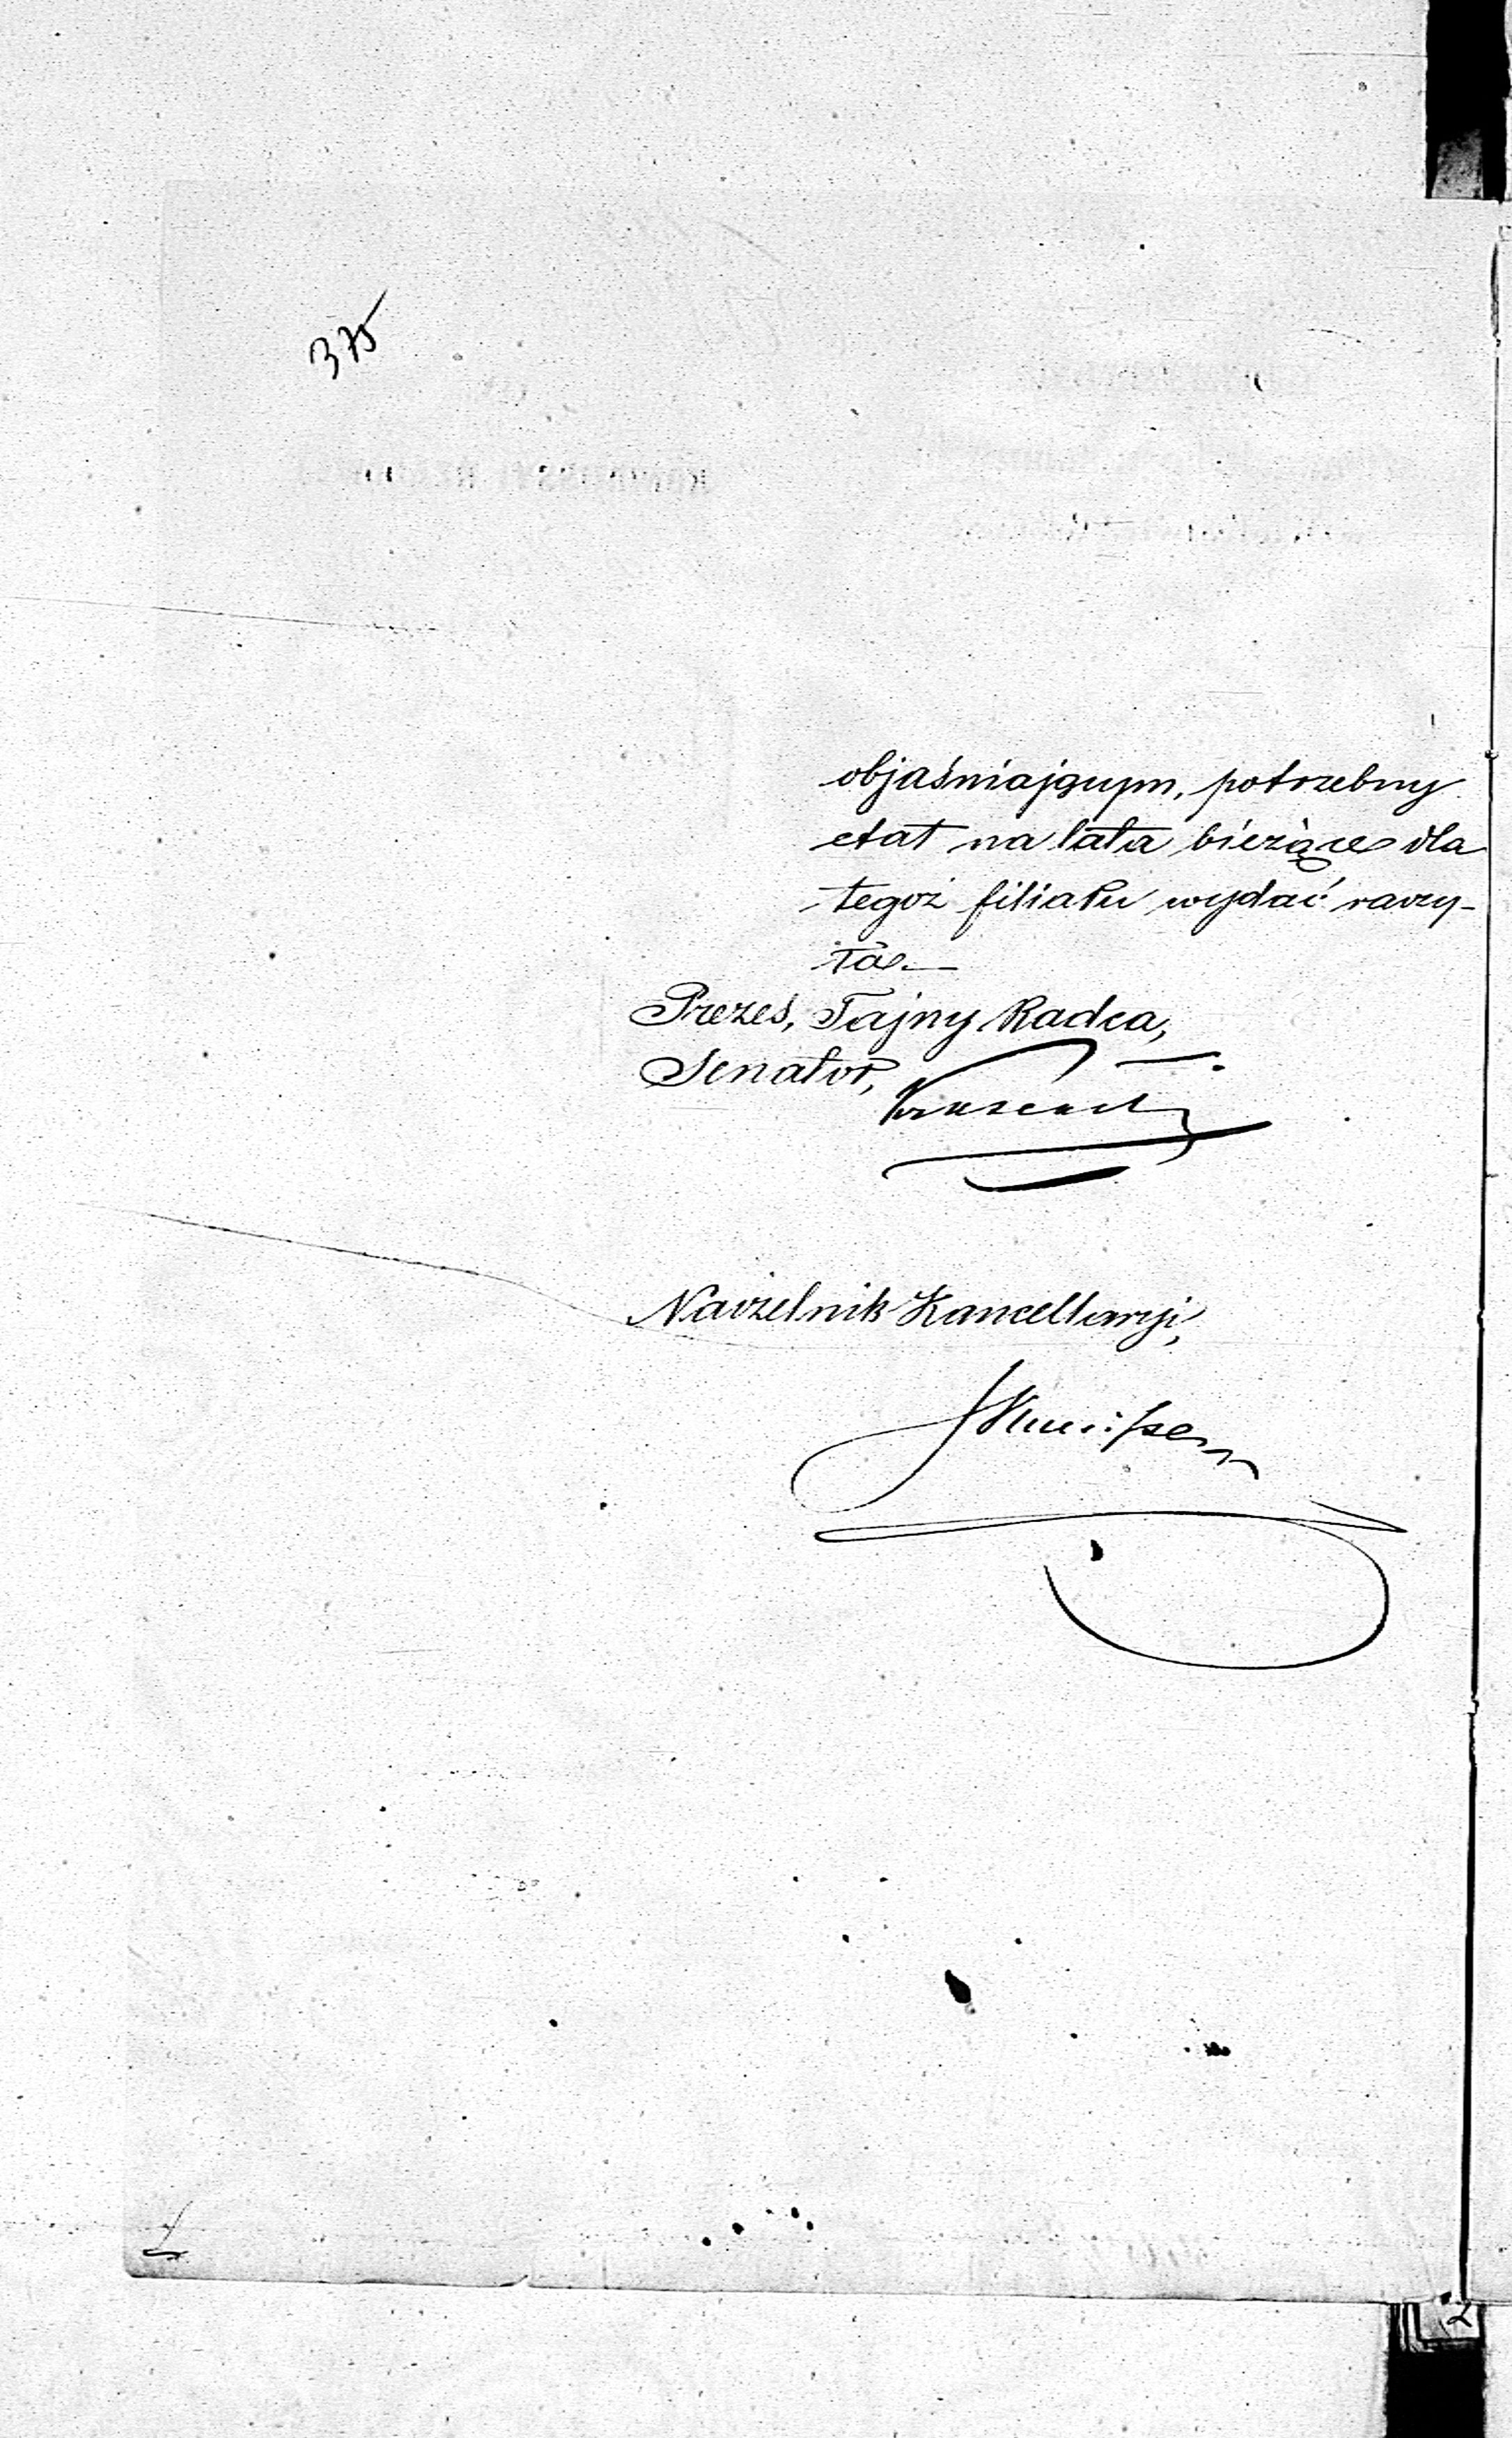 375
objaśniającym, potrzebny
etat na lata bieżące dla
tegoż filialu wydać raczy-
ła.—
Prezes, Tajny Radca,
Senator,
Naczelnik Kancellaryi,